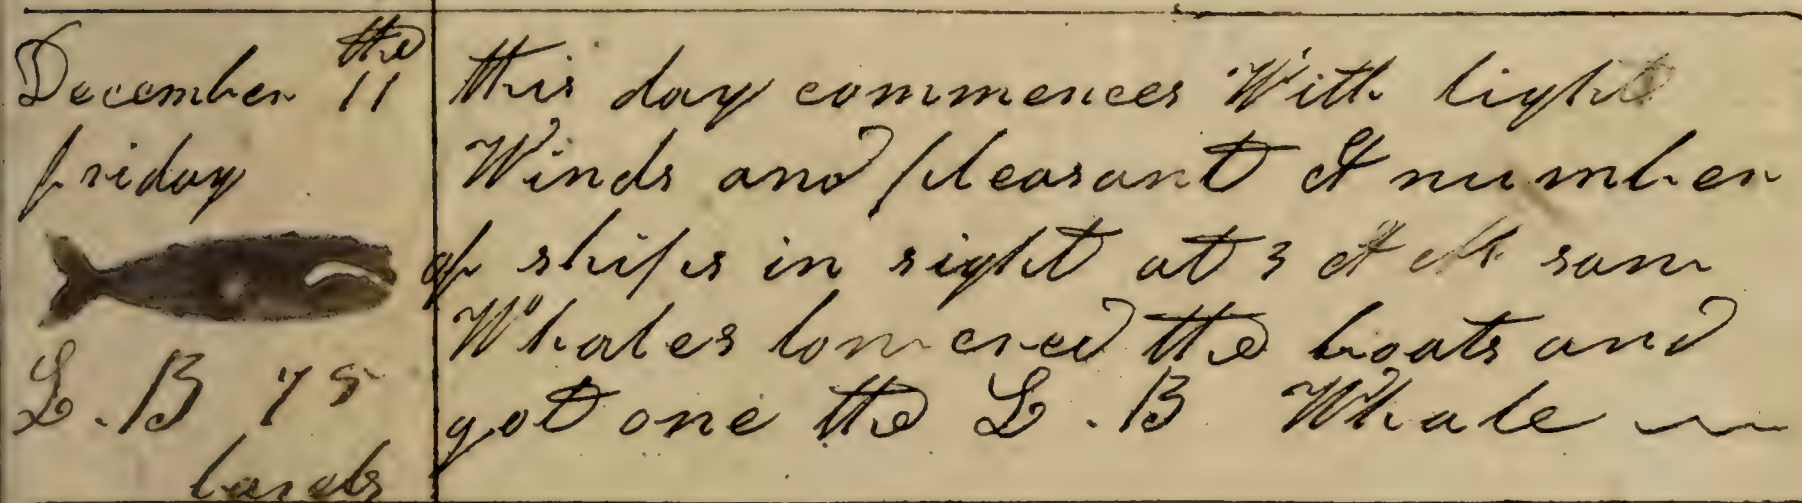 December 11 the
friday
L. B 75
barels
this day commences With light
Winds and pleasant A number
of ships in sight at 3 A M saw
Whales lowered the boats and
got one the L. B Whale